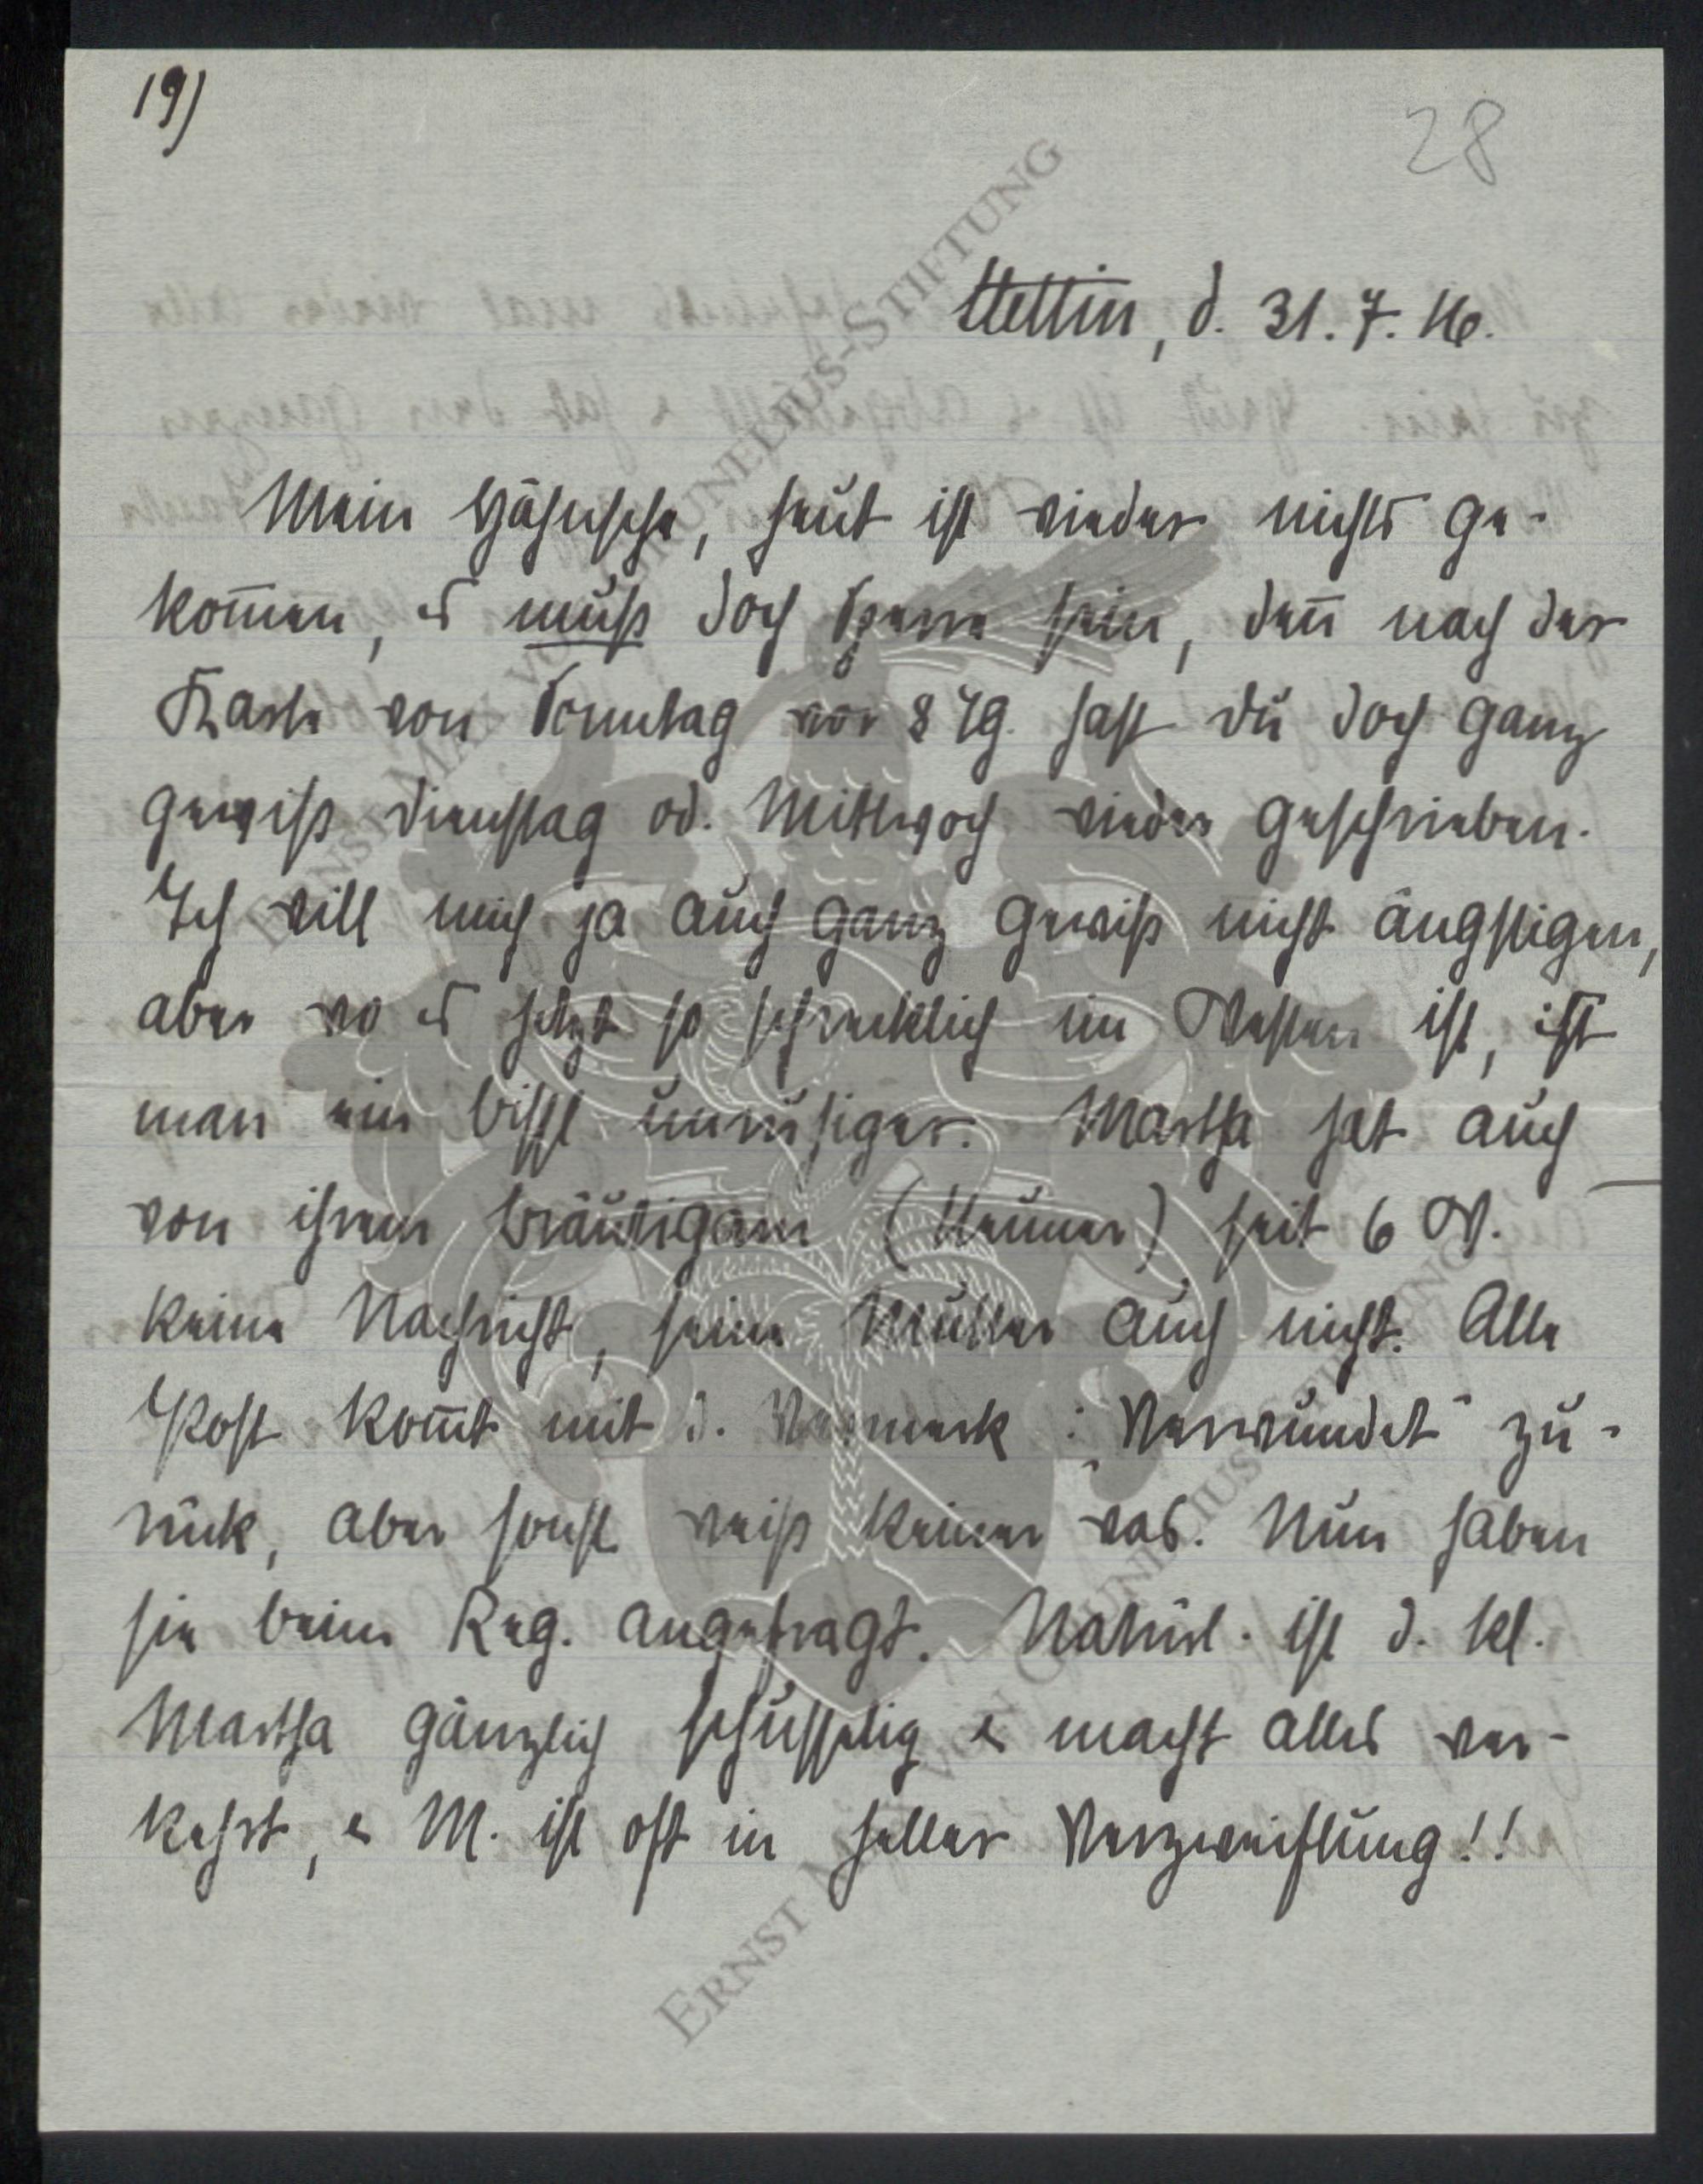 19)
28
Stettin, d. 31. 7. 16.
Mein Hähnsche, heut ist wieder nichts ge-
kom̄en, es muß doch Sperre sein, den̄ nach der
Karte von Sonntag vor 8 Tg. hast Du doch ganz
gewiß Dienstag od. Mittwoch wieder geschrieben.
Ich will mich ja auch ganz gewiß nicht ängstigen,
aber wo es jetzt so schrecklich im Westen ist, ist
man ein bissl unruhiger. Martha hat auch
von ihrem Bräutigam () seit 6 W.
keine Nachricht, seine Mutter auch nicht. Alle
Post kom̄t mit d. Vermerk : „Verwundet“ zu-
rück, aber sonst weiß keiner was. Nun haben
sie beim Reg. angefragt. Natürl. ist d. kl.
Martha gänzlich schusselig & macht alles ver-
kehrt, & M. ist oft in heller Verzweiflung!!
ERNST MAX VON GRUNELIUS-STIFTUNG
ERNST MAX VON GRUNELIUS-STIFTUNG